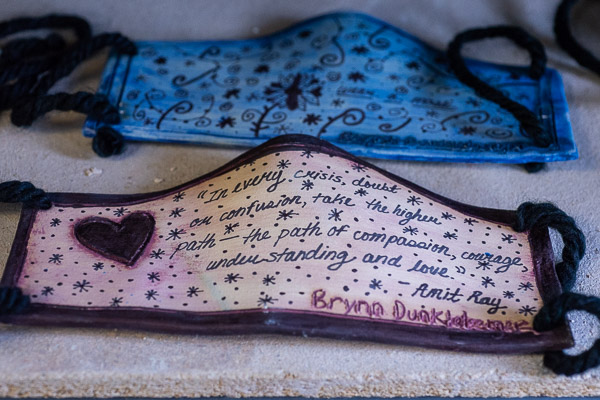 "In every crisis, doubt
or confusion, take the higher
path — the path of compassion, courage,
understanding and love."
— Amit Ray
Brynn